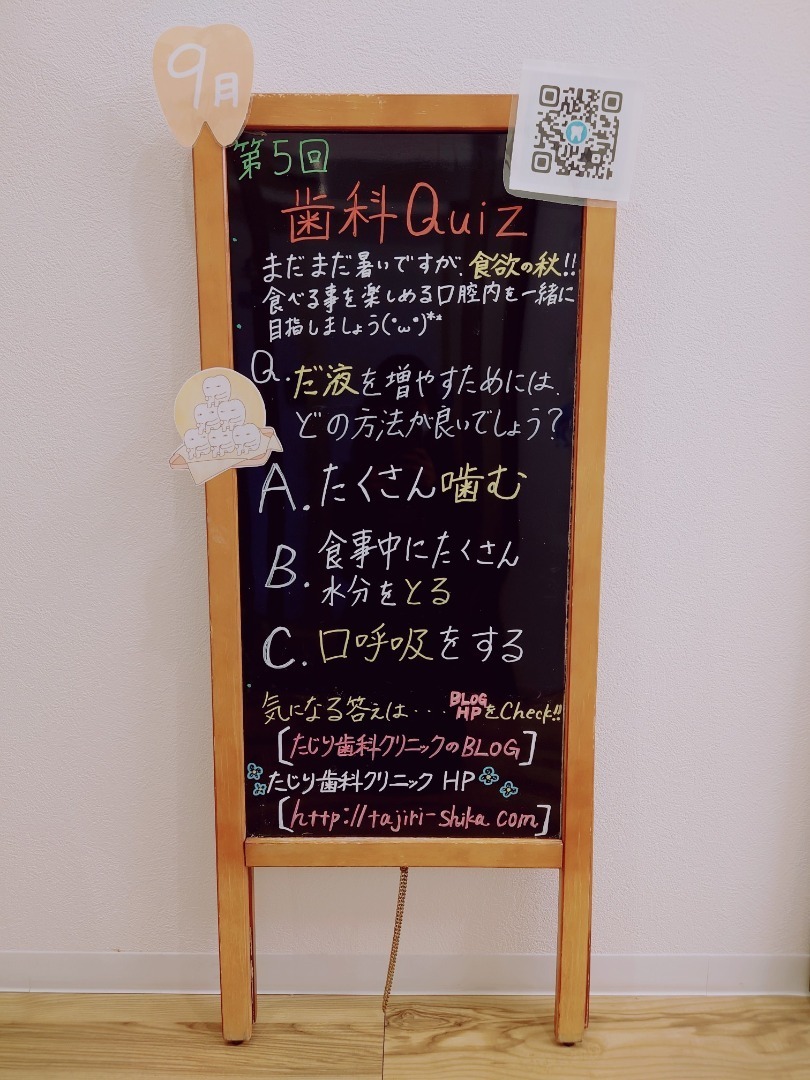 9月
第5回
歯科Quiz
まだまだ暑いですが、食欲の秋!!
食べる事を楽しめる口腔内を一緒に
目指しましょう(･ω･)**
Q.だ液を増やすためには、
どの方法が良いでしょう?
A.たくさん噛む
B.食事中にたくさん
水分をとる
C.口呼吸をする
気になる答えは・・・BLOG HPをCheck!!
[たじり歯科クリニックのBLOG]
たじり歯科クリニック HP
[http://tajiri-shika.com]